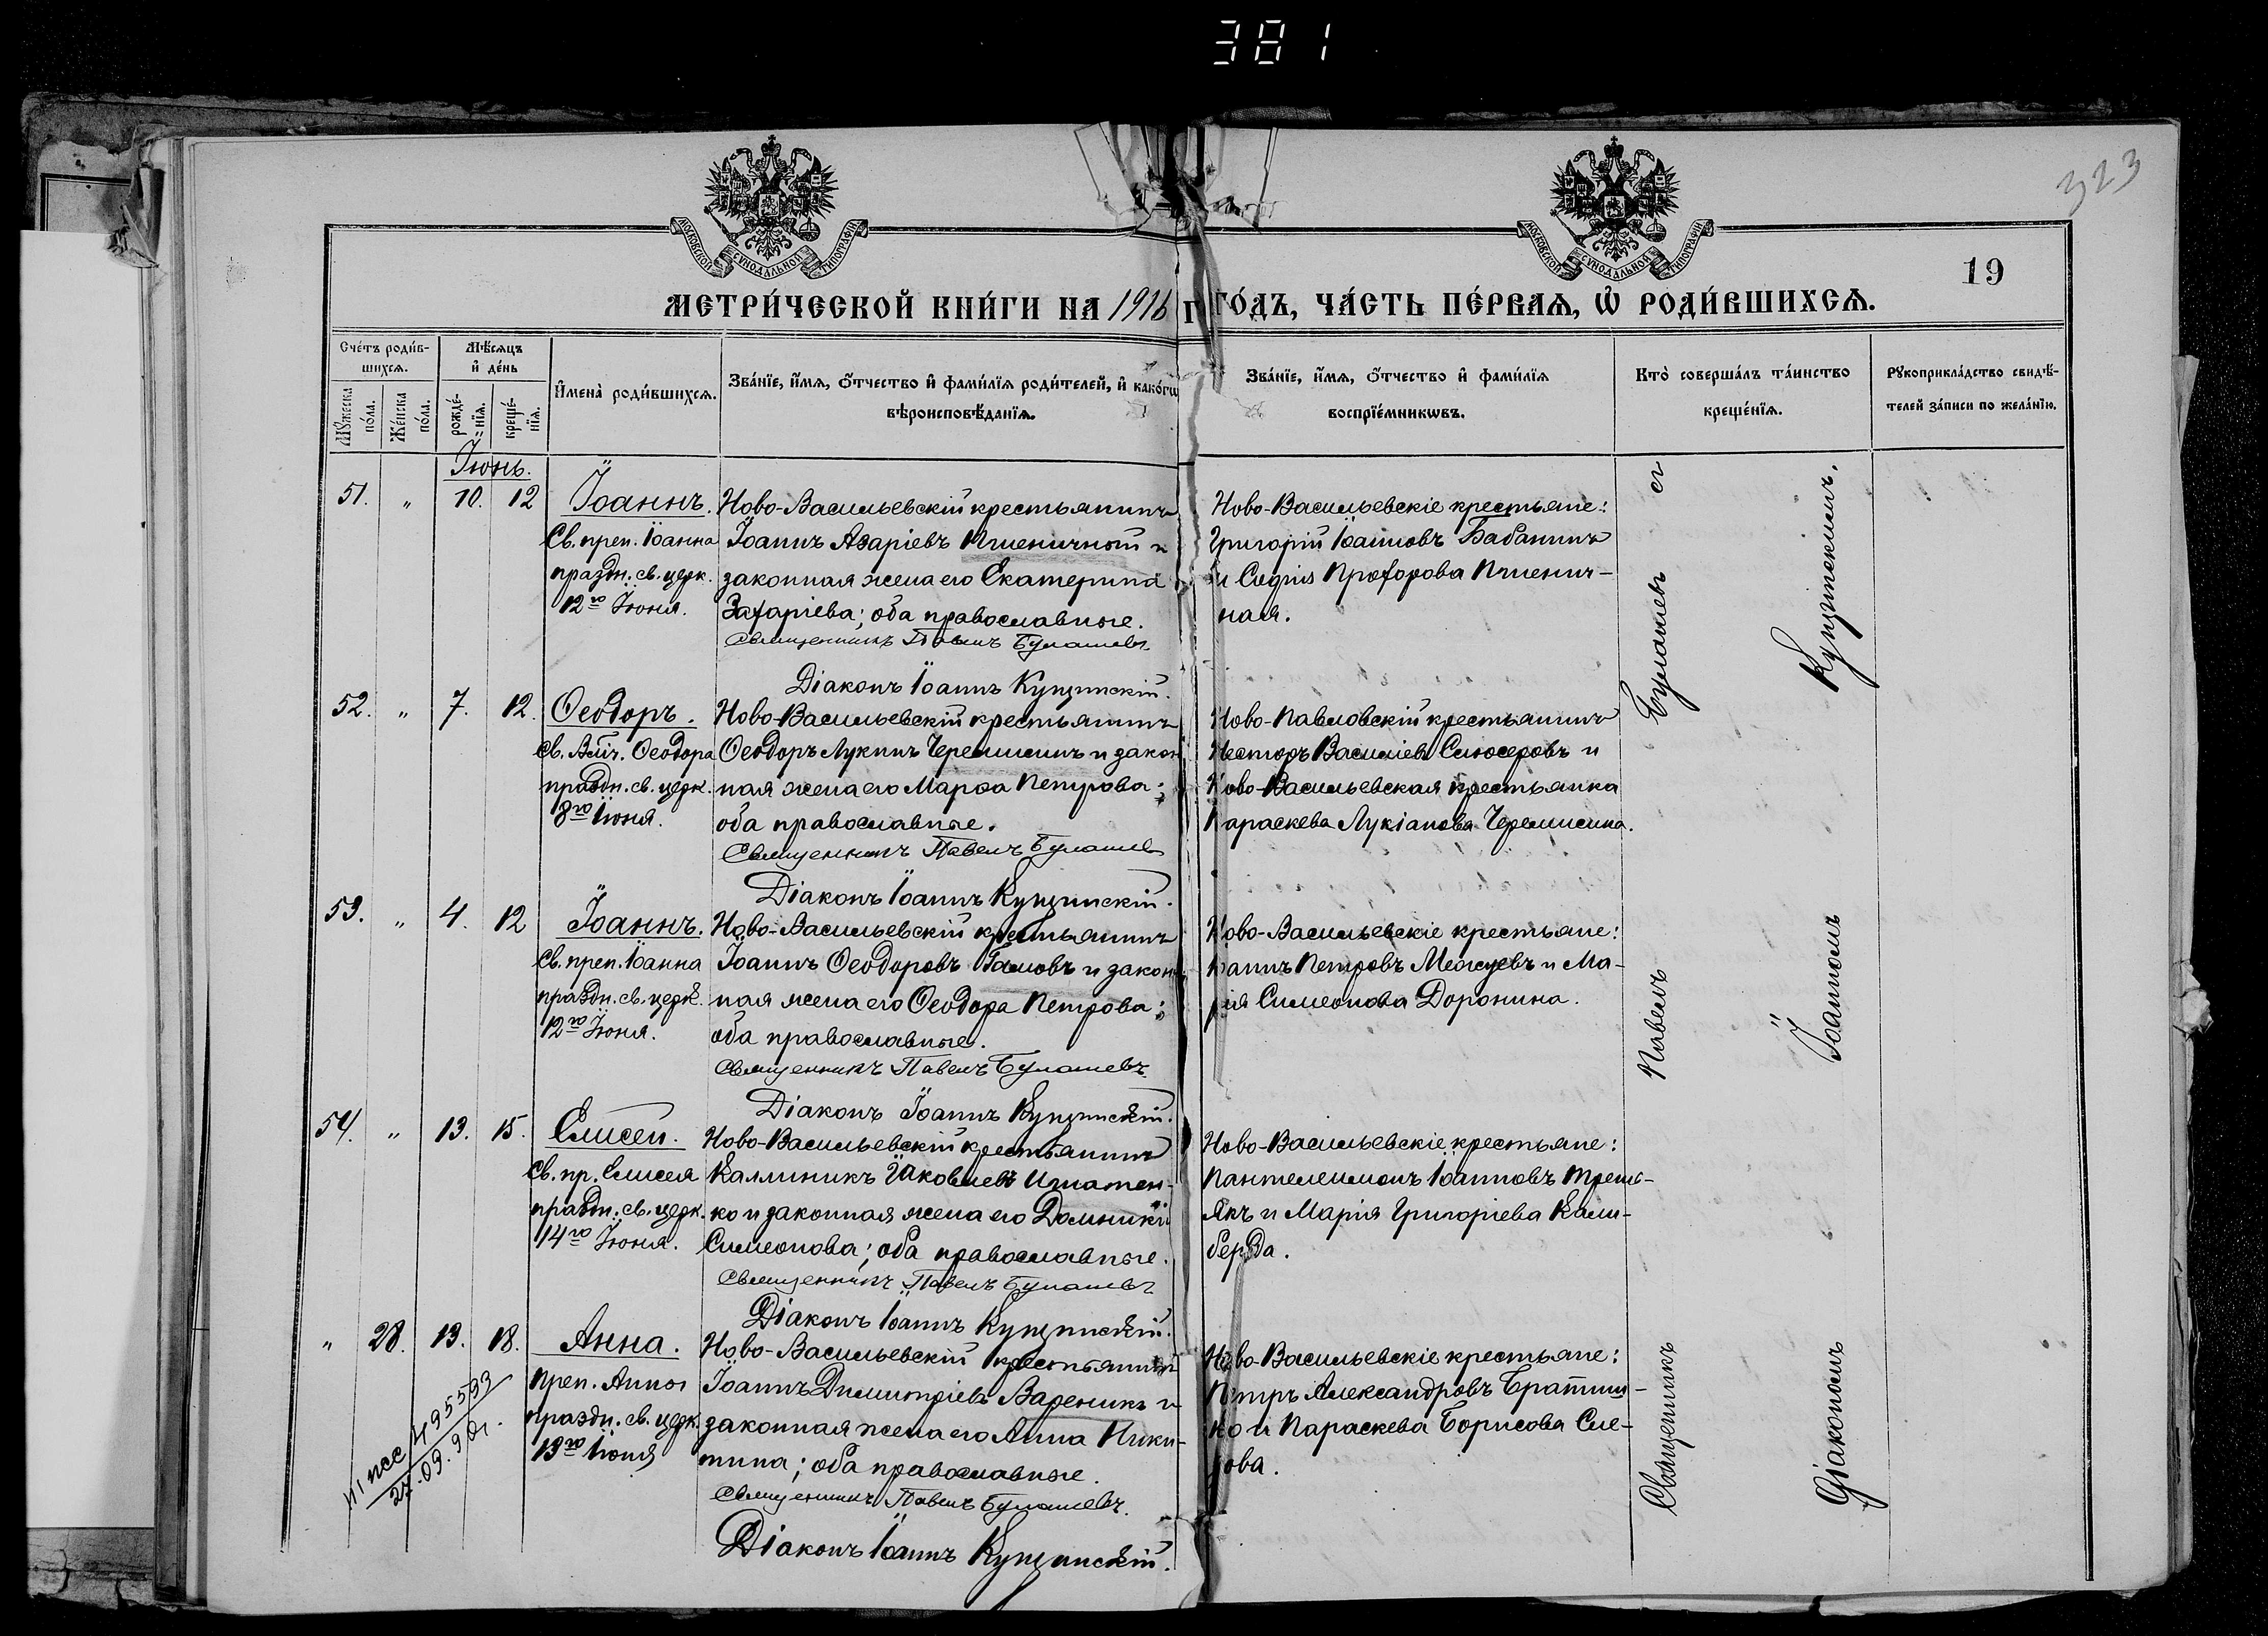 381
323
МОСКОВСКОЙ СѴНОДАЛЬНОЙ ТИПОГРАФІИ
МОСКОВСКОЙ СѴНОДАЛЬНОЙ ТИПОГРАФІИ
19
МЕТРИ́ЧЕСКОЙ КНИ́ГИ НА 1916 Г ГО́ДЪ, ЧА́СТЬ ПЕ́РВАѦ, Ѡ҆ РОДИ́ВШИХСѦ.
Сче́тъ роди́в-
шихсѧ.
Мꙋ́жеска по́ла.
Же́нска по́ла.
Мѣ́сѧцъ
и҆ де́нь
рожде́-
нїѧ.
креще́-
нїѧ.
И҆мена̀ роди́вшихсѧ.
Зва́нїе, и҆́мѧ, ѻ҆́тчество и҆ фами́лїѧ роди́телей, и҆ како́гѡ
вѣроисповѣ́данїѧ.
Зва́нїе, и҆́мѧ, ѻ҆́тчество и҆ фами́лїѧ
воспрїе́мникѡвъ.
Кто̀ соверша́лъ та́инство
креще́нїѧ.
Рꙋкоприкла́дство свидѣ́-
телей за́писи по жела́нїю.
Іюнь.
51. " 10. 12 Іоаннъ.
Св. преп. Іоанна
праздн. св. церк.
12го Іюня.
Ново-Васильевскій крестьянинъ
Іоаннъ Азаріевъ Пшеничный и
законная жена его Екатерина
Захаріева; оба православные.
Священникъ Павелъ Булашевъ
Діаконъ Іоаннъ Кунцинскій.
Ново-Васильевскіе крестьяне:
Григорій Іоанновъ Бабанинъ
и Софія Прохорова Пшенич-
ная.
52. " 7. 12. Ѳеодоръ.
Св. Влмч. Ѳеодора
праздн. св. церк.
8го Іюня.
Ново-Васильевскій крестьянинъ
Ѳеодоръ Лукинъ Черемисинъ и закон
ная жена его Марѳа Петрова;
оба православные.
Священникъ Павелъ Булашев
Діаконъ Іоаннъ Кунцинскій.
Ново-Павловскій крестьянинъ
Несторъ Василіевъ Слюсеровъ и
Ново-Васильевская крестьянка
Параскева Лукіанова Черемисина.
53. " 4. 12 Іоаннъ.
Св. преп. Іоанна
праздн. св. церк.
12го Іюня.
Ново-Васильевскій крестьянинъ
Іоаннъ Ѳеодоровъ и закон
ная жена его Ѳеодора Петрова;
оба православные.
Священникъ Павелъ Булашевъ
Діаконъ Іоаннъ Кунцинскій.
Ново-Васильевскіе крестьяне:
Іоаннъ Петровъ Межуевъ и Ма-
рія Симеонова Доронина.
54. " 13. 15. Елисей.
Св. пр. Елисея
праздн. св. церк.
14го Іюня.
Ново-Васильевскій крестьянинъ
Каллиникъ Іаковлевъ Игнатен-
ко и законная жена его Домникія
Симеонова; оба православные.
Священникъ Павелъ Булашевъ
Діаконъ Іоаннъ Кунцинскій.
Ново-Васильевскіе крестьяне:
Пантелеимонъ Іоанновъ Треть-
якъ и Марія Григоріева Кали-
берда.
" 28. 13. 18. Анна.
Преп. Анны
праздн. св. церк.
13го Іюня
Ново-Васильевскій крестьянинъ
Іоаннъ Димитріевъ Вареникъ и
законная жена его Анна Ники-
тина; оба православные.
Священникъ Павелъ Булашевъ.
Діаконъ Іоаннъ Кунцинскій.
Ново-Васильевскіе крестьяне:
Петръ Александровъ Братиш-
ко и Параскева Борисова Сле-
495593
27.09.90г.
Священникъ Павелъ Булашевъ съ
Діакономъ Іоанномъ Кунцинскимъ.